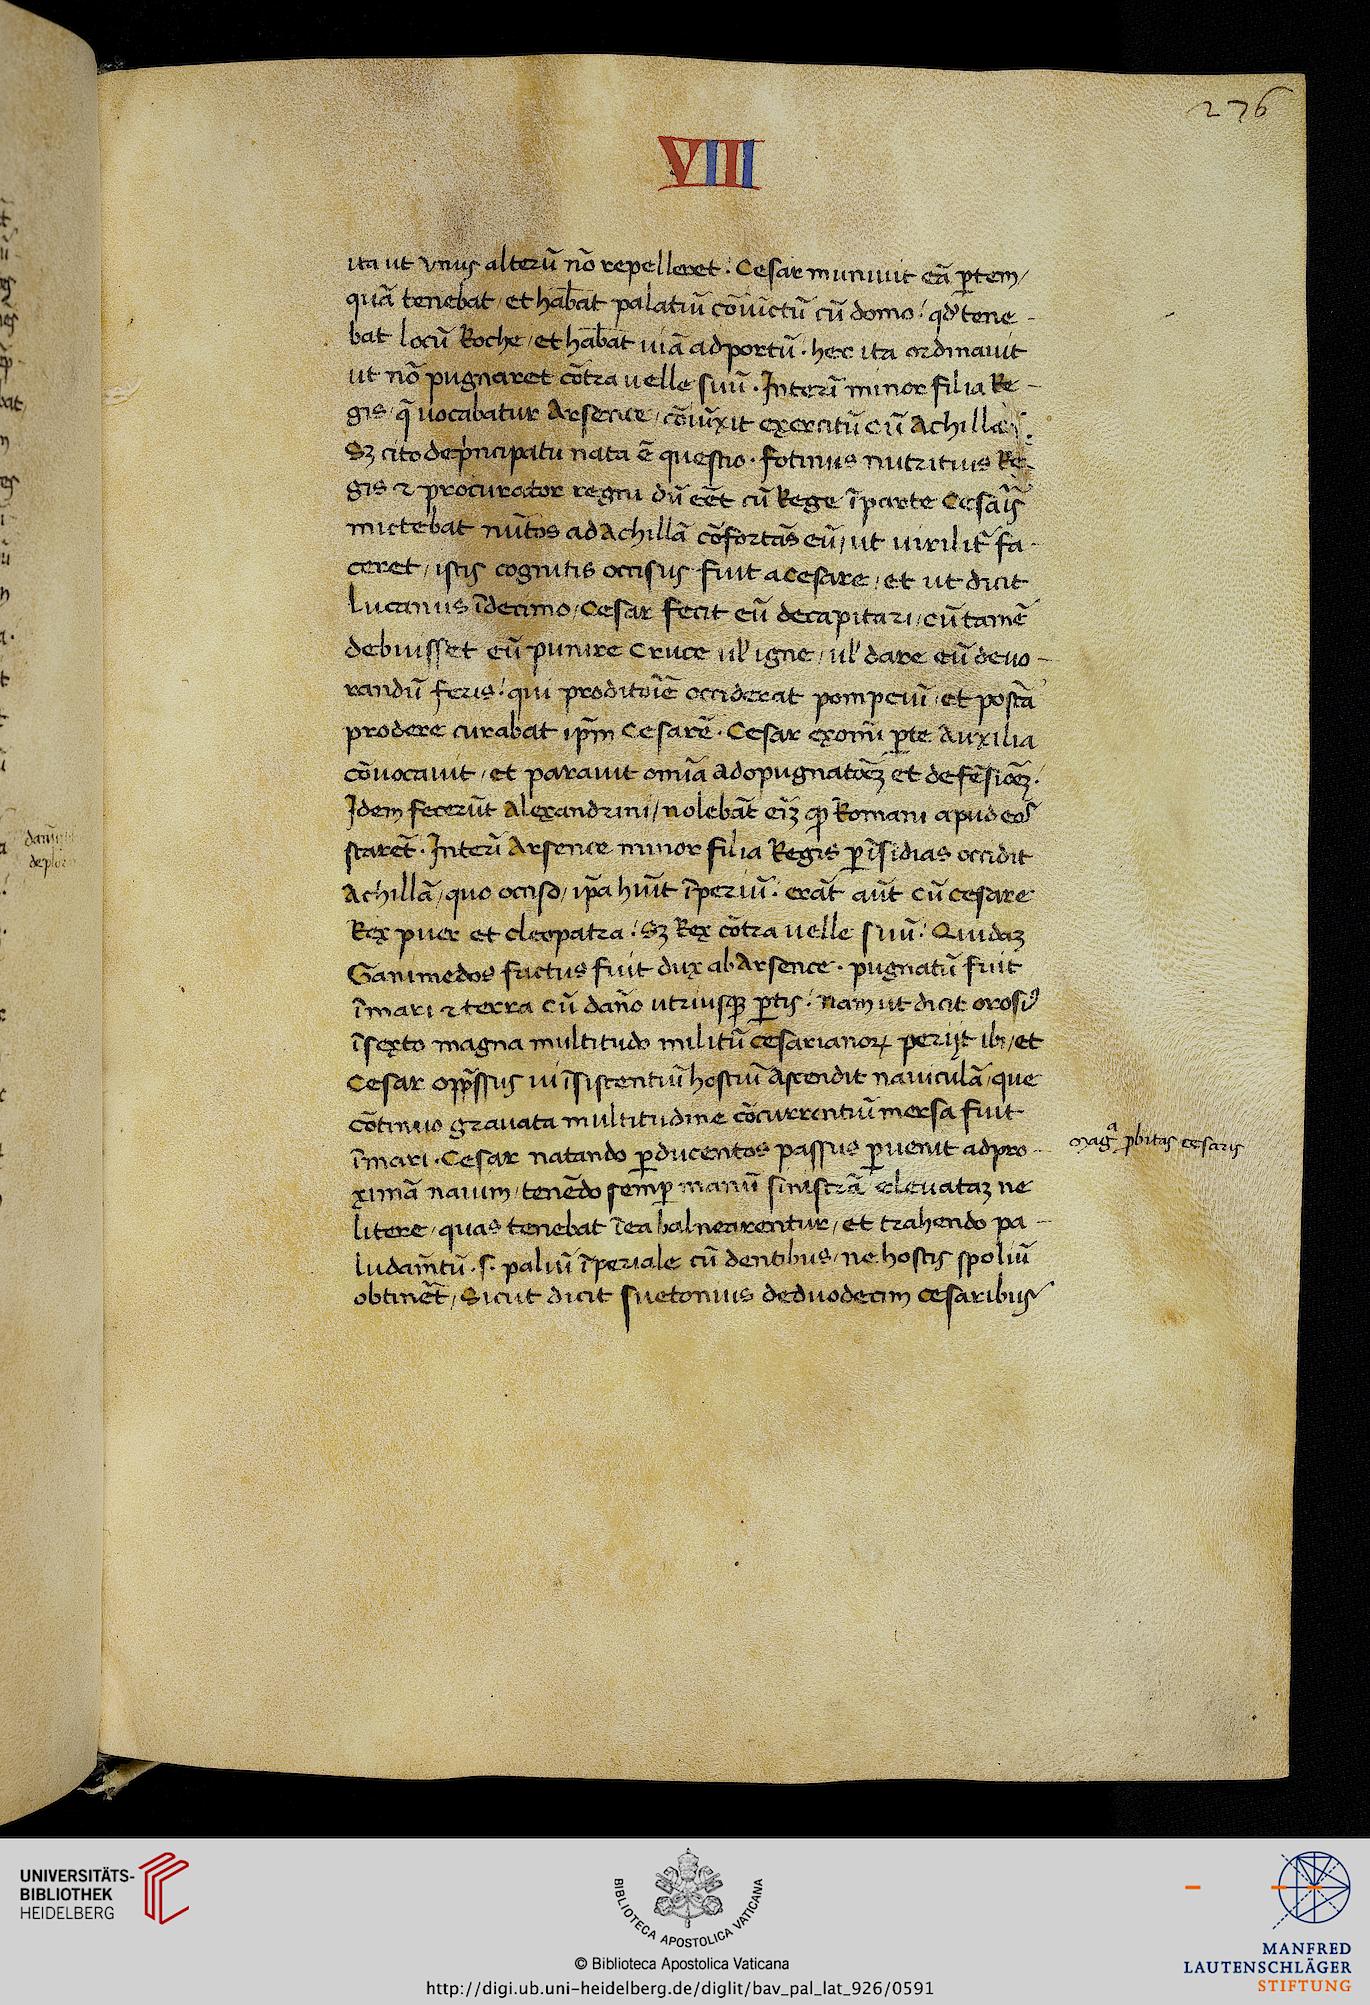 276
VIII
ita ut vnus alterū nō repelleret. Cesar muniuit eā ꝑtem/
quā tenebat / et habēat palatiū cōiūctū cū domo: qd̓ tene-
bat locū Roche / et habēat uiā ad portū. hec ita ordinauit
ut nō pugnaret cōtra uelle suū. Interī minor filia Re-
gis / q̄ uocabatur Arsence / cōiūxit exercitū cū Achilla.
Sꝫ cito de pͥncipatu nata ē questio. fotinus nutritius Re-
gis ⁊ procurator regni dū eēt cū Rege ī parte Cesaīs
mictebat nūtos ad Achillā cōfortās eū / ut uirilit̄ fa-
ceret / istis cognitis occisus fuit a Cesare / et ut dicit
Lucanus ī decimo / Cesar fecit eū decapitari / cū tamē
debuisset eū punire Cruce ul̓ igne / ul̓ dare eū deuo-
randū feris: qui proditoīē occiderat pompeiū / et postā
prodere curabat ip̄m Cesarē. Cesar ex om̄i ꝑte Auxilia
cōuocauit / et parauit omīa ad opugnatōꝫ et defēsiōꝫ.
Idem fecerūt Alexandrini / nolebāt eīꝫ ꝙ Romani apud eoˢ
starēt. Interī Arsence minor filia Regis ꝑ īsidias occidit
Achillā / quo occiso / ip̄a hūit īperiū. erāt aūt cū Cesare
Rex puer et cleopatra: Sꝫ Rex cōtra uelle suū: Quidaꝫ
Ganimedos factus fuit dux ab Arsence. pugnatū fuit
ī mari ⁊ terra cū dan̄o utriusqꝫ ꝑtis: nam ut dicit orosiꝰ
ī sexto magna multitudo militū Cesarianoꝝ perijt ibi / et
Cesar opp̄ssus ui īsistentiū hostiū Ascendit nauiculā / que
cōtinuo grauata multitudine cōcurrentiū mersa fuit
ī mari. Cesar natando ꝑ ducentos passus ꝑuenit ad pro-
ximā nauim / tenēdo semꝑ manū sinistrā eleuataꝫ ne
litere / quas tenebat ī ea balnearentur / et trahendo pa-
ludam̄tū .s. paliū īperiale cū dentibus / ne hostis spoliū
obtinēt / Sicut dicit suetonius de duodecim cesaribus
magᵃ ꝓbitas cesaris
UNIVERSITÄTS-
BIBLIOTHEK
HEIDELBERG
BIBLIOTECA APOSTOLICA VATICANA
© Biblioteca Apostolica Vaticana
http://digi.ub.uni-heidelberg.de/diglit/bav_pal_lat_926/0591
MANFRED
LAUTENSCHLÄGER
STIFTUNG